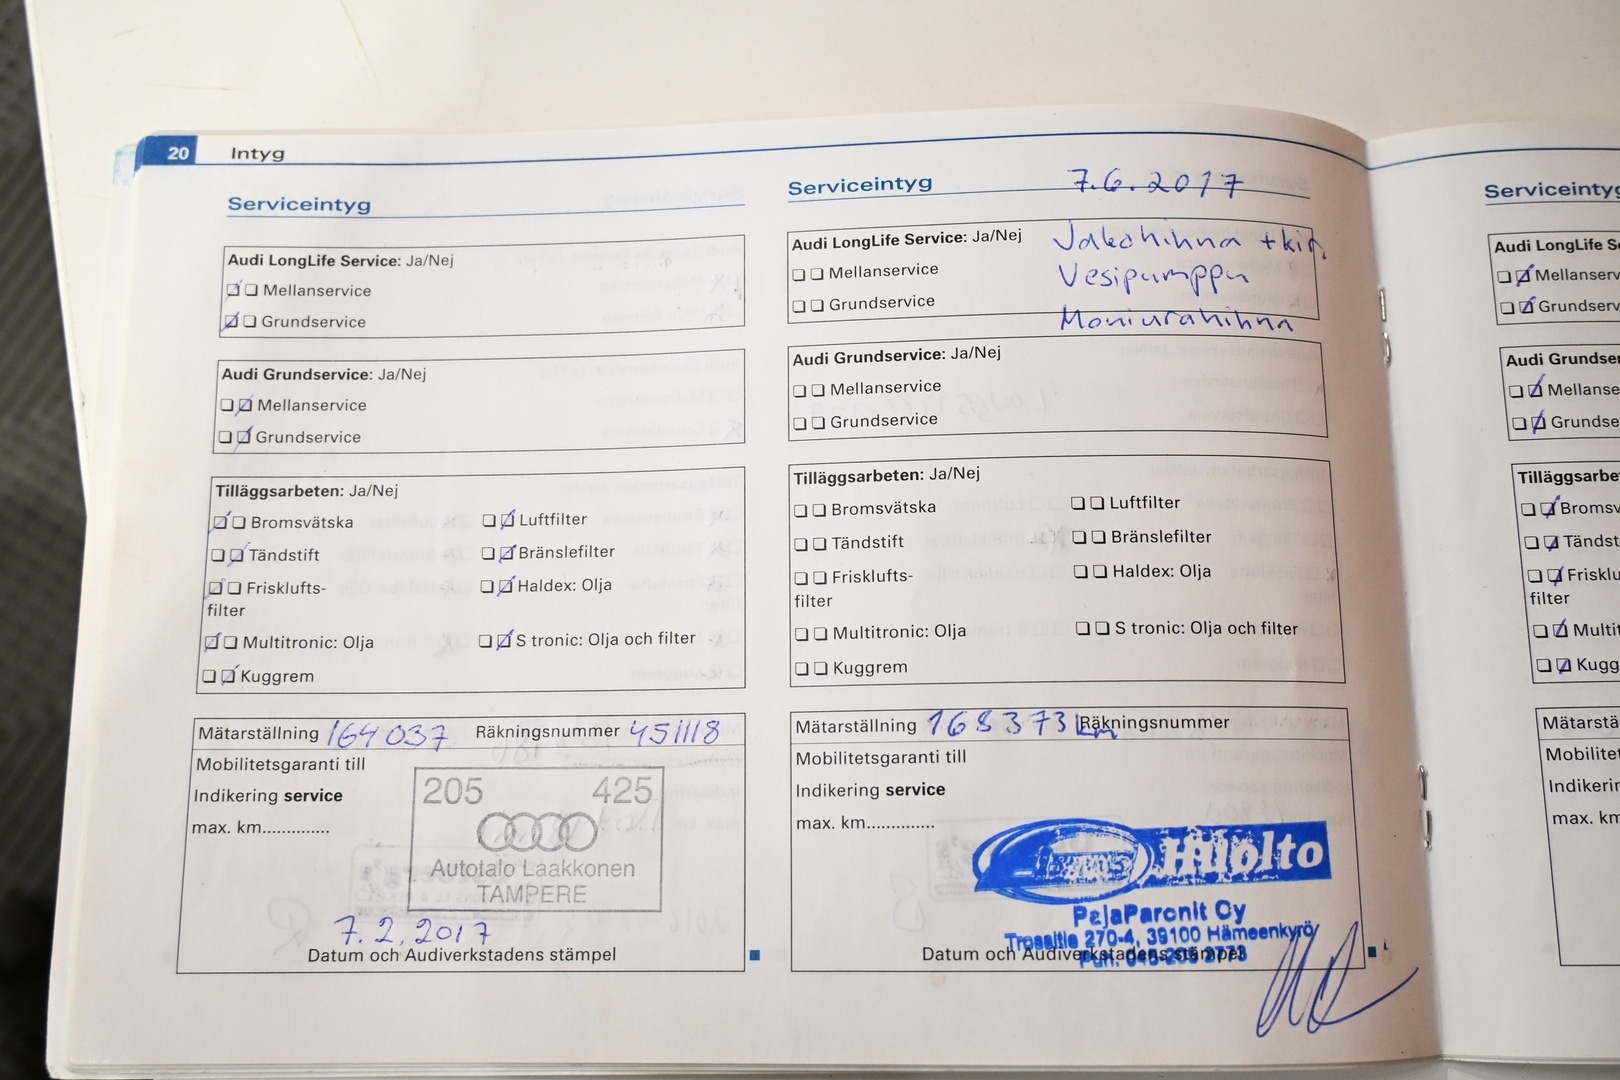 20 Intyg
Serviceintyg
Audi LongLife Service: Ja/Nej
Mellanservice
Grundservice
Audi Grundservice: Ja/Nej
Mellanservice
Grundservice
Tilläggsarbeten: Ja/Nej
Bromsvätska Luftfilter
Tändstift Bränslefilter
Frisklufts- Haldex: Olja
filter
Multitronic: Olja S tronic: Olja och filter
Kuggrem
Mätarställning 164037 Räkningsnummer 451118
Mobilitetsgaranti till
Indikering service
max. km..............
205 425
Autotalo Laakkonen
TAMPERE
7.2.2017
Datum och Audiverkstadens stämpel
Serviceintyg 7.6.2017
Audi LongLife Service: Ja/Nej Jakohihna + kir
Mellanservice Vesipumppu
Grundservice Moniurahihna
Audi Grundservice: Ja/Nej
Mellanservice
Grundservice
Tilläggsarbeten: Ja/Nej
Bromsvätska Luftfilter
Tändstift Bränslefilter
Frisklufts- Haldex: Olja
filter
Multitronic: Olja S tronic: Olja och filter
Kuggrem
Mätarställning 168373 km Räkningsnummer
Mobilitetsgaranti till
Indikering service
max. km..............
Huolto
PajaParonit Oy
270-4, 39100 Hämeenkyrö
Datum och Audiverkstadens stämpel
Serviceintyg
Audi LongLife Se
Mellanserv
Grundserv
Audi Grundser
Mellanse
Grundse
Tilläggsarbe
Bromsv
Tändst
Frisklu
filter
Multit
Kugg
Mätarstä
Mobilitet
Indikerin
max. km